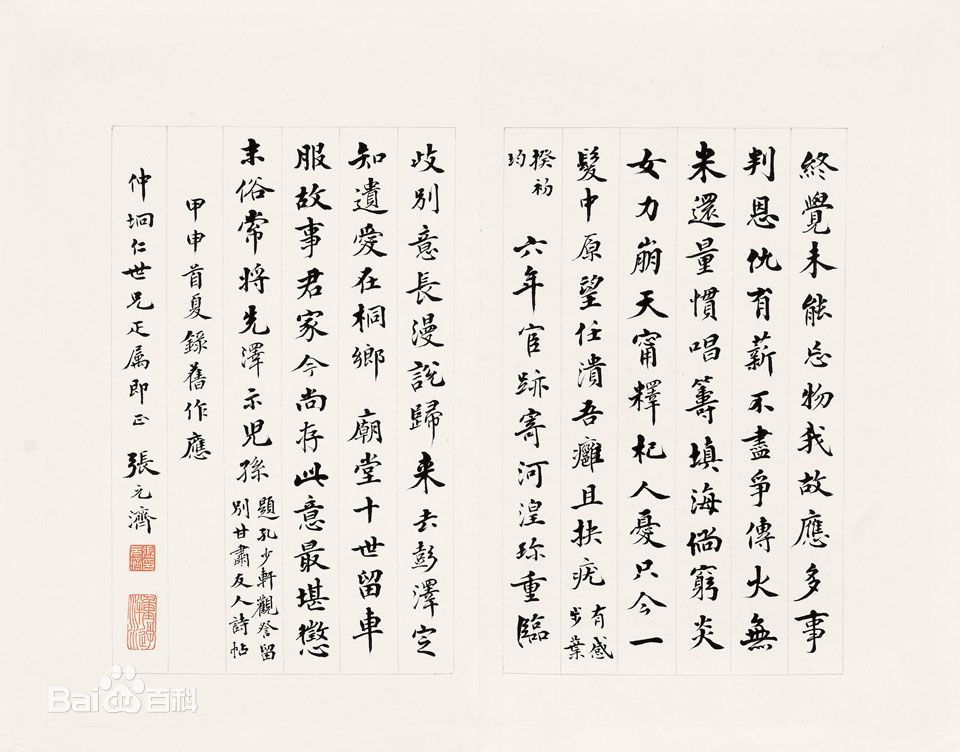 終覺未能忘物我故應多事
判恩仇有薪不盡爭傳火無
米還量慣唱籌填海倘窮炎
女力崩天甯釋杞人憂只今一
髮中原望任潰吾癰且抉疣 有感
步葉
揆初
均 六年官跡寄河湟珍重臨
歧別意長漫說歸来去彭澤定
知遺愛在桐鄉 廟堂十世留車
服故事君家今尚存此意最堪懲
末俗常将先澤示児孫 題孔少軒觀詧留
別甘肅友人詩帖
甲申首夏錄舊作應
仲坰仁世兄正属即正 張元濟
Bai百科